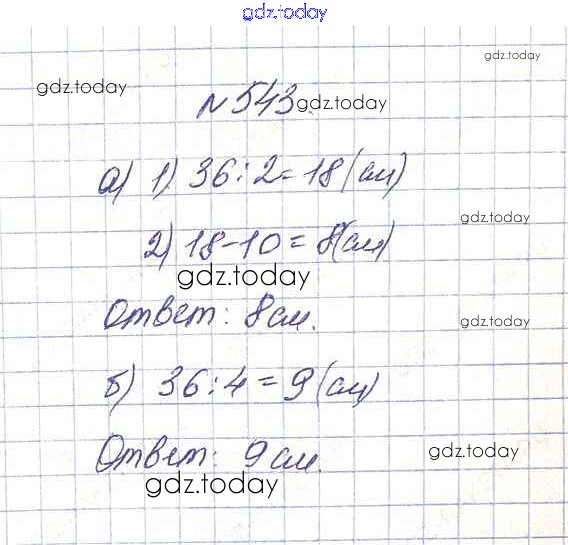 gdz.today
gdz.today
gdz.today
№ 543. gdz.today
а) 1) 36 : 2 = 18 (см)
gdz.today
2) 18 - 10 = 8 (см)
gdz.today
Ответ: 8 см.
gdz.today
б) 36 : 4 = 9 (см)
Ответ: 9 см.
gdz.today
gdz.today